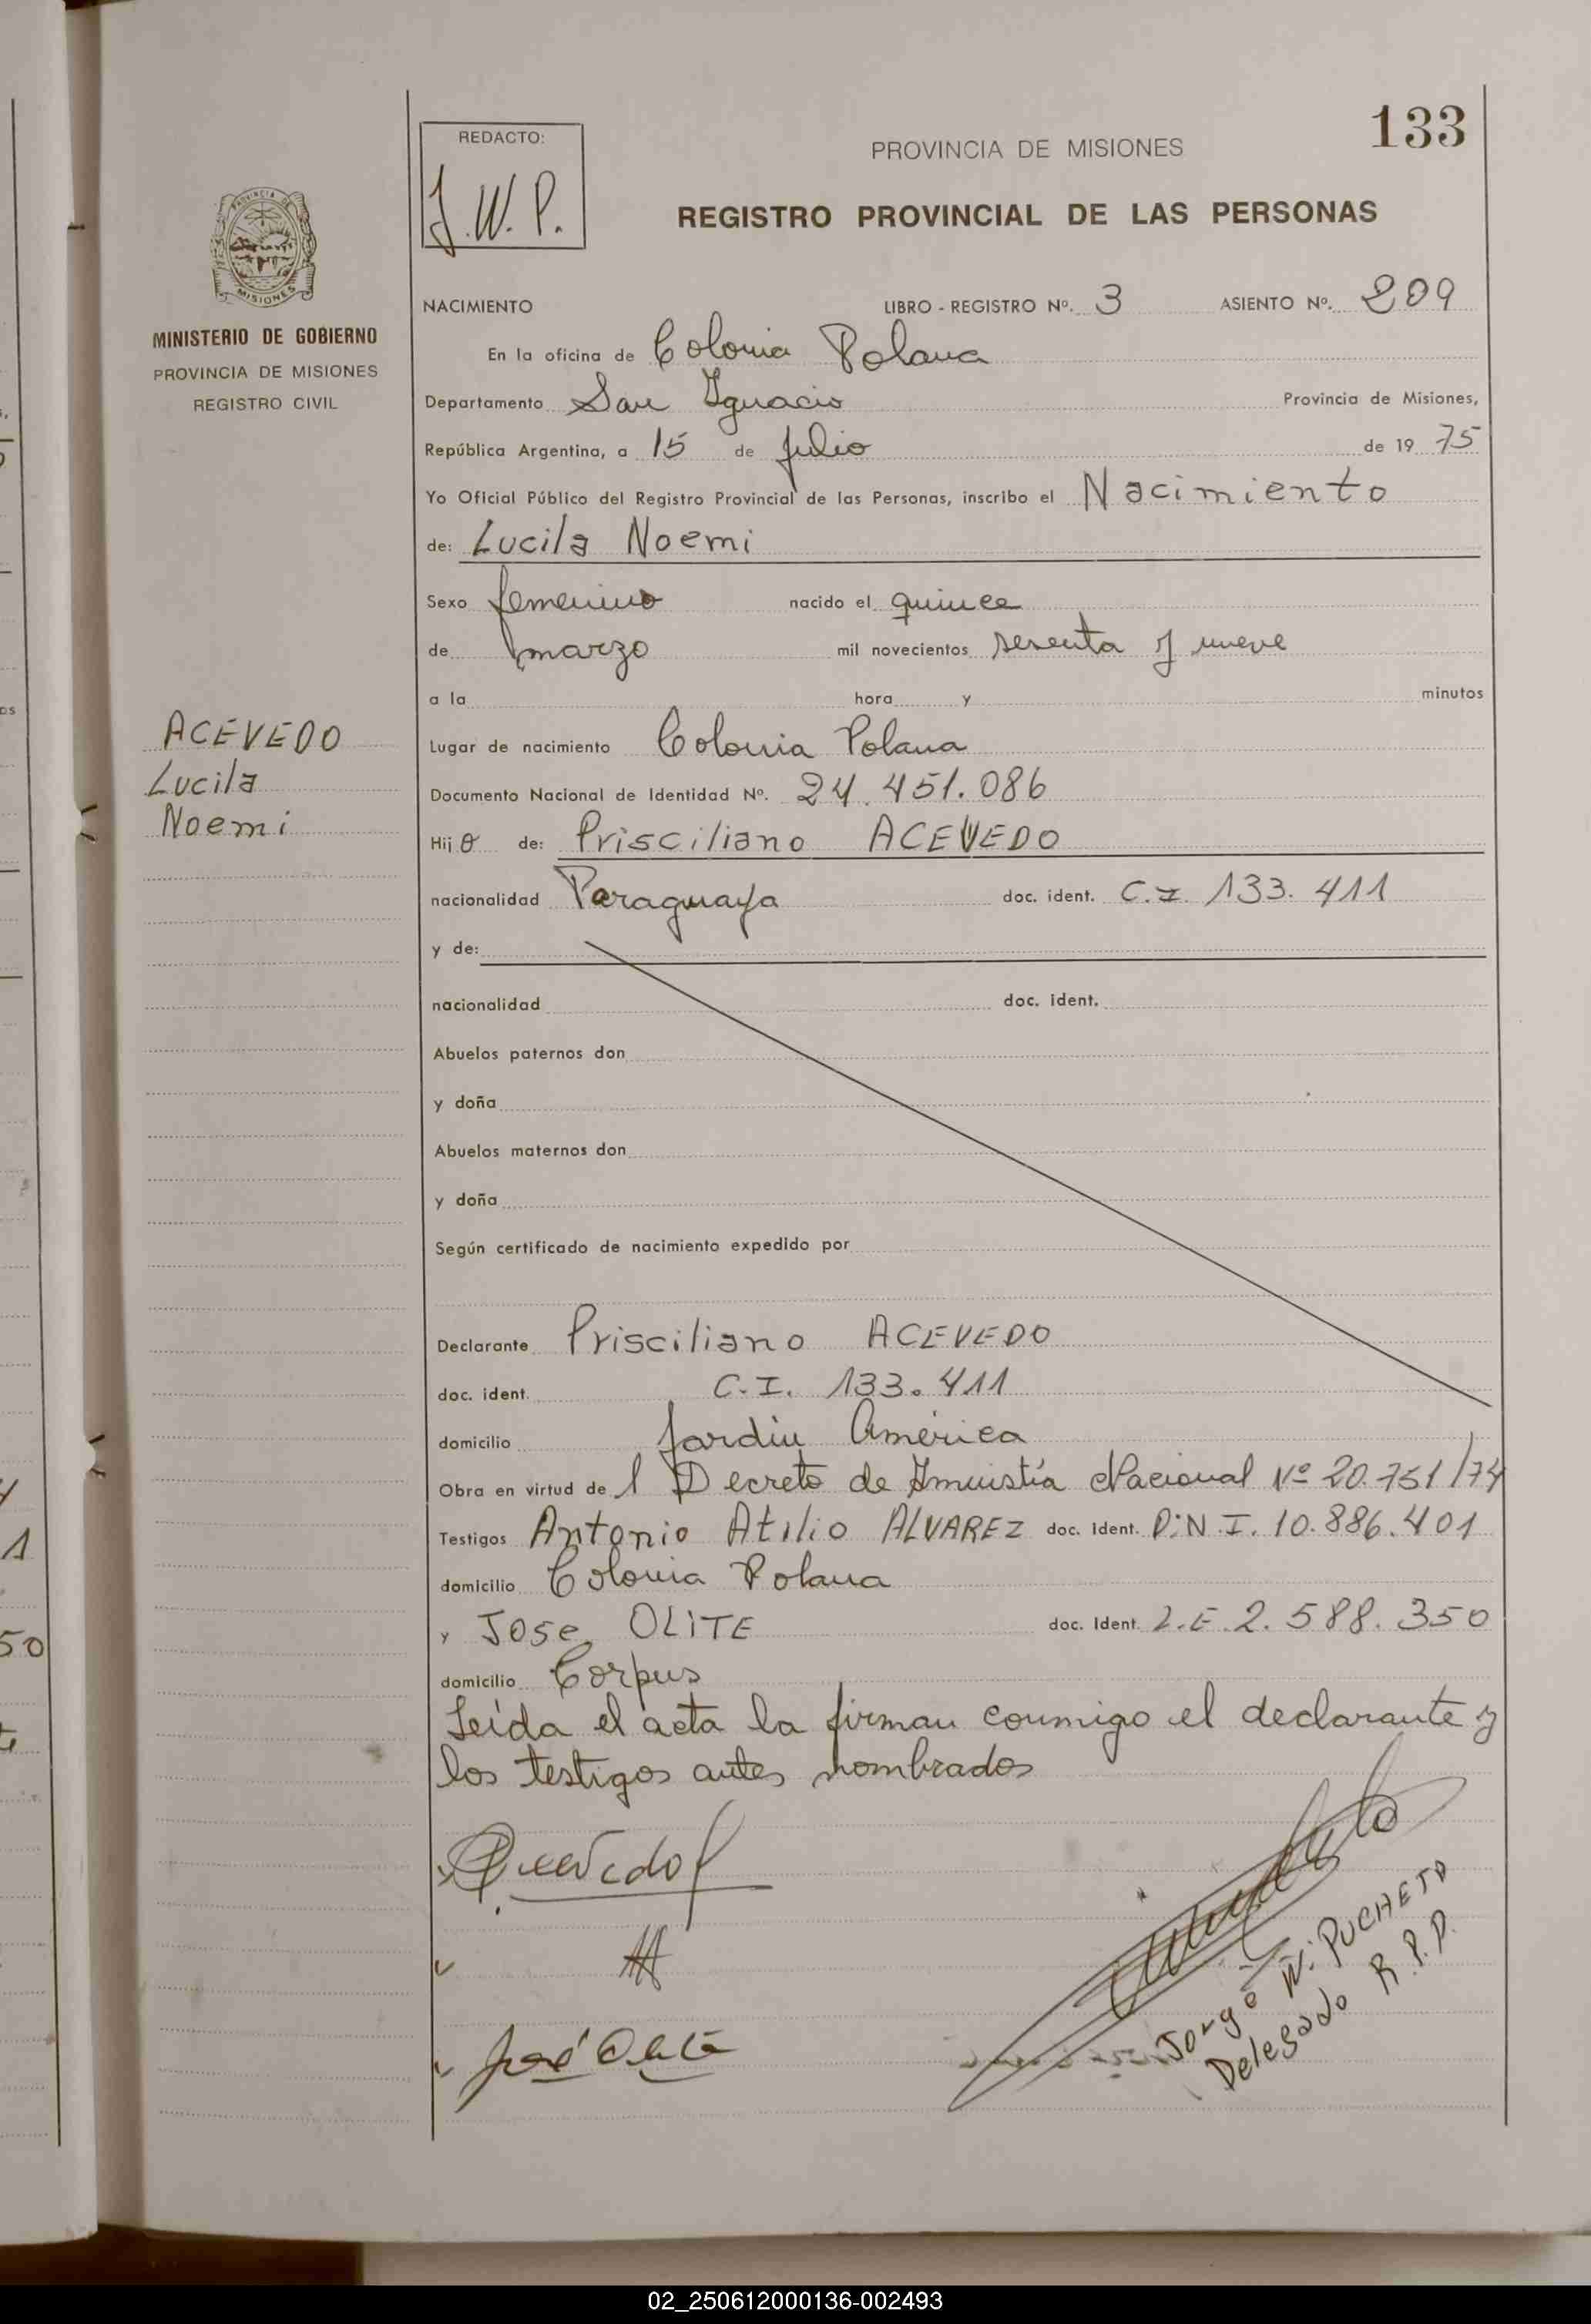 133
REDACTO:
J.W.P.
PROVINCIA DE MISIONES
REGISTRO PROVINCIAL DE LAS PERSONAS
MINISTERIO DE GOBIERNO
PROVINCIA DE MISIONES
REGISTRO CIVIL
NACIMIENTO LIBRO - REGISTRO Nº. 3 ASIENTO Nº. 209
En la oficina de Colonia Polana
Departamento San Ignacio Provincia de Misiones,
República Argentina, a 15 de Julio de 1975
Yo Oficial Público del Registro Provincial de las Personas, inscribo el Nacimiento
de: Lucila Noemi
Sexo femenino nacido el quince
de marzo mil novecientos sesenta y nueve
a la hora y minutos
ACEVEDO
Lucila
Noemi
Lugar de nacimiento Colonia Polana
Documento Nacional de Identidad Nº. 24.451.086
Hijo de: Prisciliano ACEVEDO
nacionalidad Paraguaya doc. ident. C.I. 133.411
y de:
nacionalidad doc. ident.
Abuelos paternos don
y doña
Abuelos maternos don
y doña
Según certificado de nacimiento expedido por
Declarante Prisciliano ACEVEDO
doc. ident. C.I. 133.411
domicilio Jardin América
Obra en virtud de l Decreto de Amnistía Nacional Nº 20.751/74
Testigos Antonio Atilio ALVAREZ doc. ident. D.N.I. 10.886.401
domicilio Colonia Polana
y Jose OLITE doc. Ident. L.E. 2.588.350
domicilio Corpus
Leída el acta la firman conmigo el declarante y
los testigos antes nombrados
José Olite
Jorge W. PUCHETA
Delegado R.P.P.
MISIONES
02_250612000136-002493